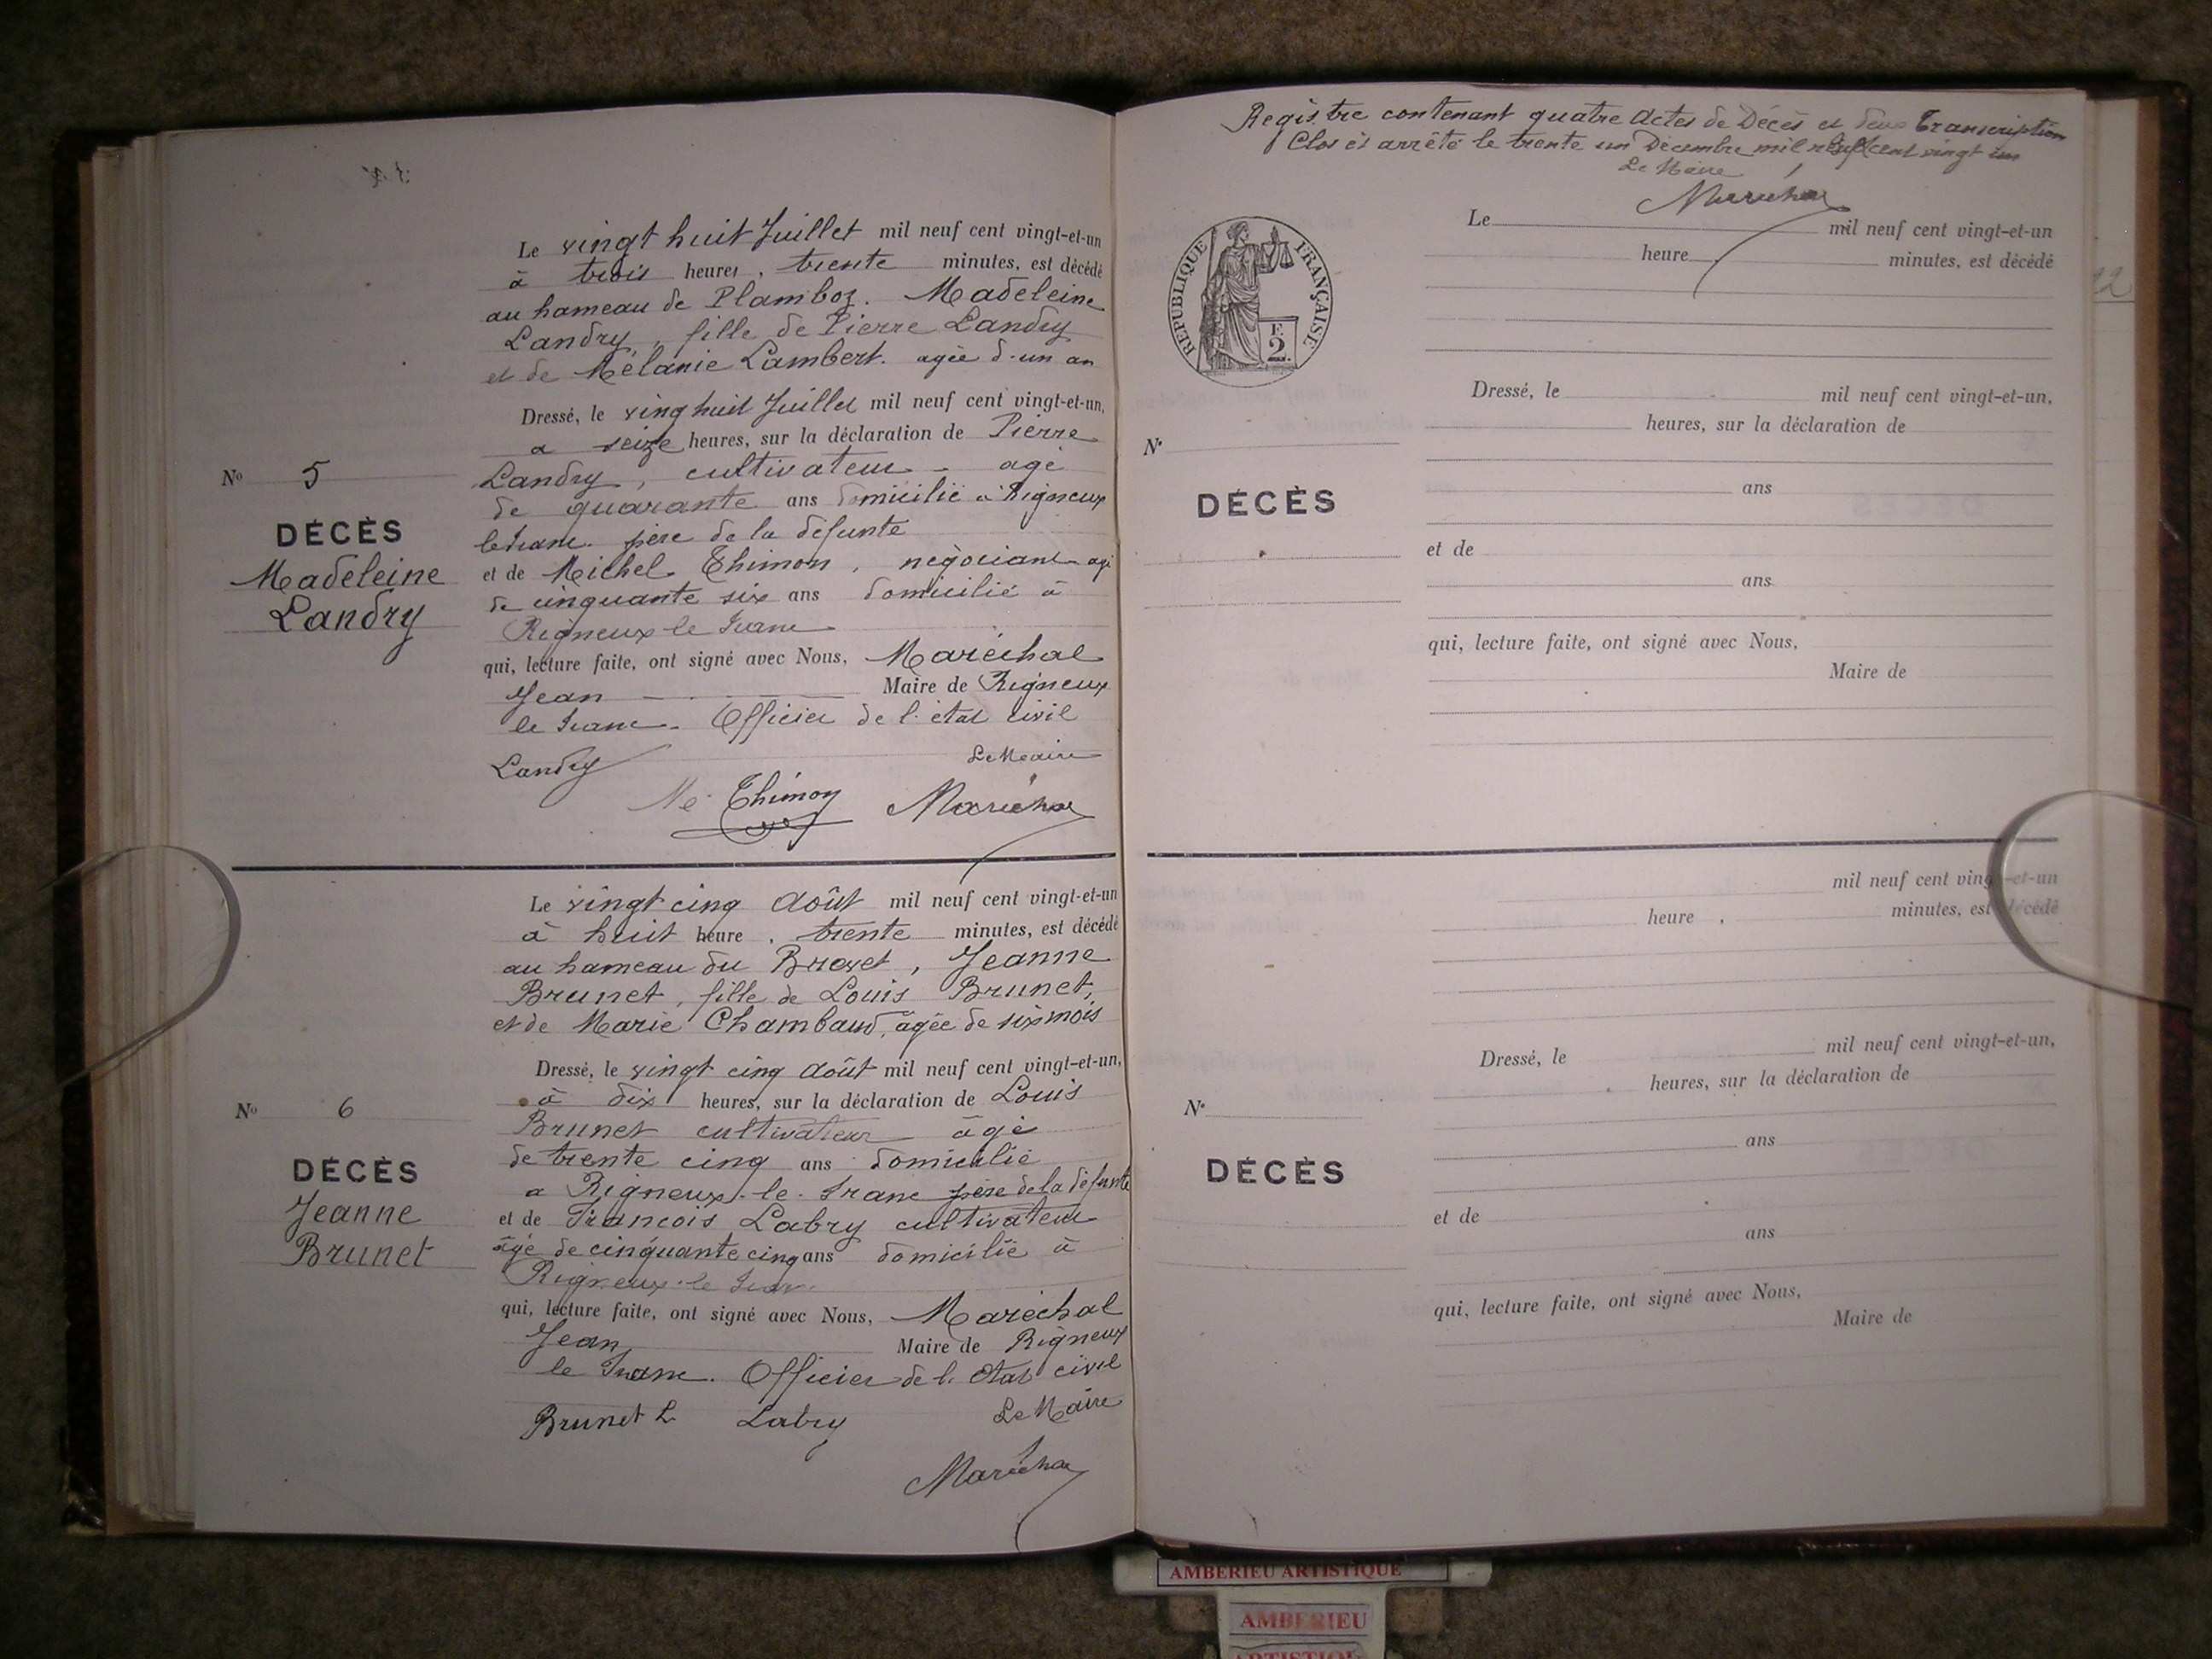 Le vingt huit Juillet mil neuf cent vingt-et-un
à trois heures, trente minutes, est décédé
au hameau de Plamboz. Madeleine
Landry, fille de Pierre Landry
et de Mélanie Lambert. agée d'un an
Dressé, le ving huit Juillet mil neuf cent vingt-et-un,
a seize heures, sur la déclaration de Pierre
Landry, cultivateur agé
de quarante ans domicilié à Rigneux
le franc. père de la défunte
et de Michel Thimon, négociant agé
de cinquante six ans domicilié à
Rigneux le Franc
qui, lecture faite, ont signé avec Nous, Maréchal
Jean Maire de Rigneux
le Franc. Officier de l'état civil
Landry Le Maire
Thimon Maréchal
No 5
DÉCÈS
Madeleine
Landry
Le vingt cinq Août mil neuf cent vingt-et-un
à huit heure, trente minutes, est décédé
au hameau du Jeanne
Brunet, fille de Louis Brunet,
et de Marie Chambaud, âgée de six mois
Dressé, le vingt cinq Août mil neuf cent vingt-et-un,
à dix heures, sur la déclaration de Louis
Brunet cultivateur âgé
de trente cinq ans domicilié
a Rigneux-le-Franc père de la défunte
et de Francois Labry cultivateur
âgé de cinquante cinq ans domicilié à
Rigneux-le Franc
qui, lecture faite, ont signé avec Nous, Maréchal
Jean Maire de Rigneux
le Franc. Officier de l'Etat civil
Brunet L Labry Le Maire
Maréchal
No 6
DÉCÈS
Jeanne
Brunet
Registre contenant quatre Actes de Décès et deux Transcription
Clos et arrêté le trente un Décembre mil neuf cent vingt un
Le Maire
Maréchal
RÉPUBLIQUE FRANÇAISE
F.
2
Le mil neuf cent vingt-et-un
heure minutes, est décédé
Dressé, le mil neuf cent vingt-et-un,
heures, sur la déclaration de
ans
et de
ans
qui, lecture faite, ont signé avec Nous,
Maire de
N°
DÉCÈS
mil neuf cent vingt-et-un
heure, minutes, est décédé
Dressé, le mil neuf cent vingt-et-un,
heures, sur la déclaration de
ans
et de
ans
qui, lecture faite, ont signé avec Nous,
Maire de
N°
DÉCÈS
AMBERIEU ARTISTIQUE
AMBERIEU
ARTISTIQUE